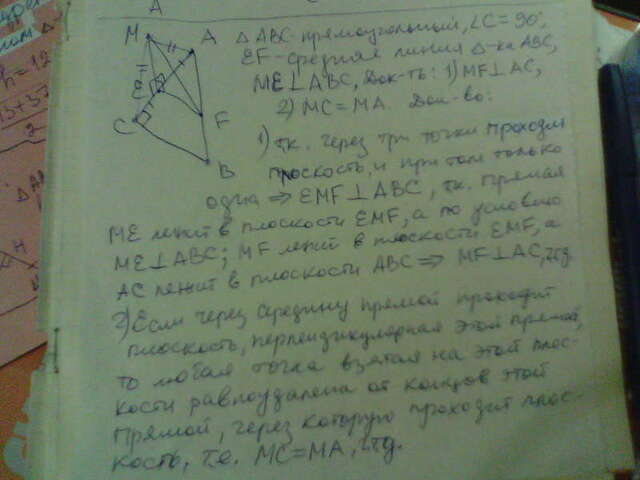 A
M
A
E
C
F
B
Δ ABC-прямоугольный, ∠C = 90°,
EF-средняя линия Δ-ка ABC,
ME⊥ABC, Док-ть: 1) MF⊥AC,
2) MC=MA. Док-во:
1) т.к. через три точки проходит
плоскость, и при том только
одна ⇒ EMF⊥ABC, т.к. прямая
ME лежит в плоскости EMF, а по условию
ME⊥ABC; MF лежит в плоскости EMF, а
AC лежит в плоскости ABC ⇒ MF⊥AC, чтд.
2) Если через середину прямой проходит
плоскость, перпендикулярная этой прямой,
то любая точка взятая на этой плос-
кости равноудалена от концов этой
прямой, через которую проходит плос-
кость, т.е. MC=MA, чтд.
h=12
2
H